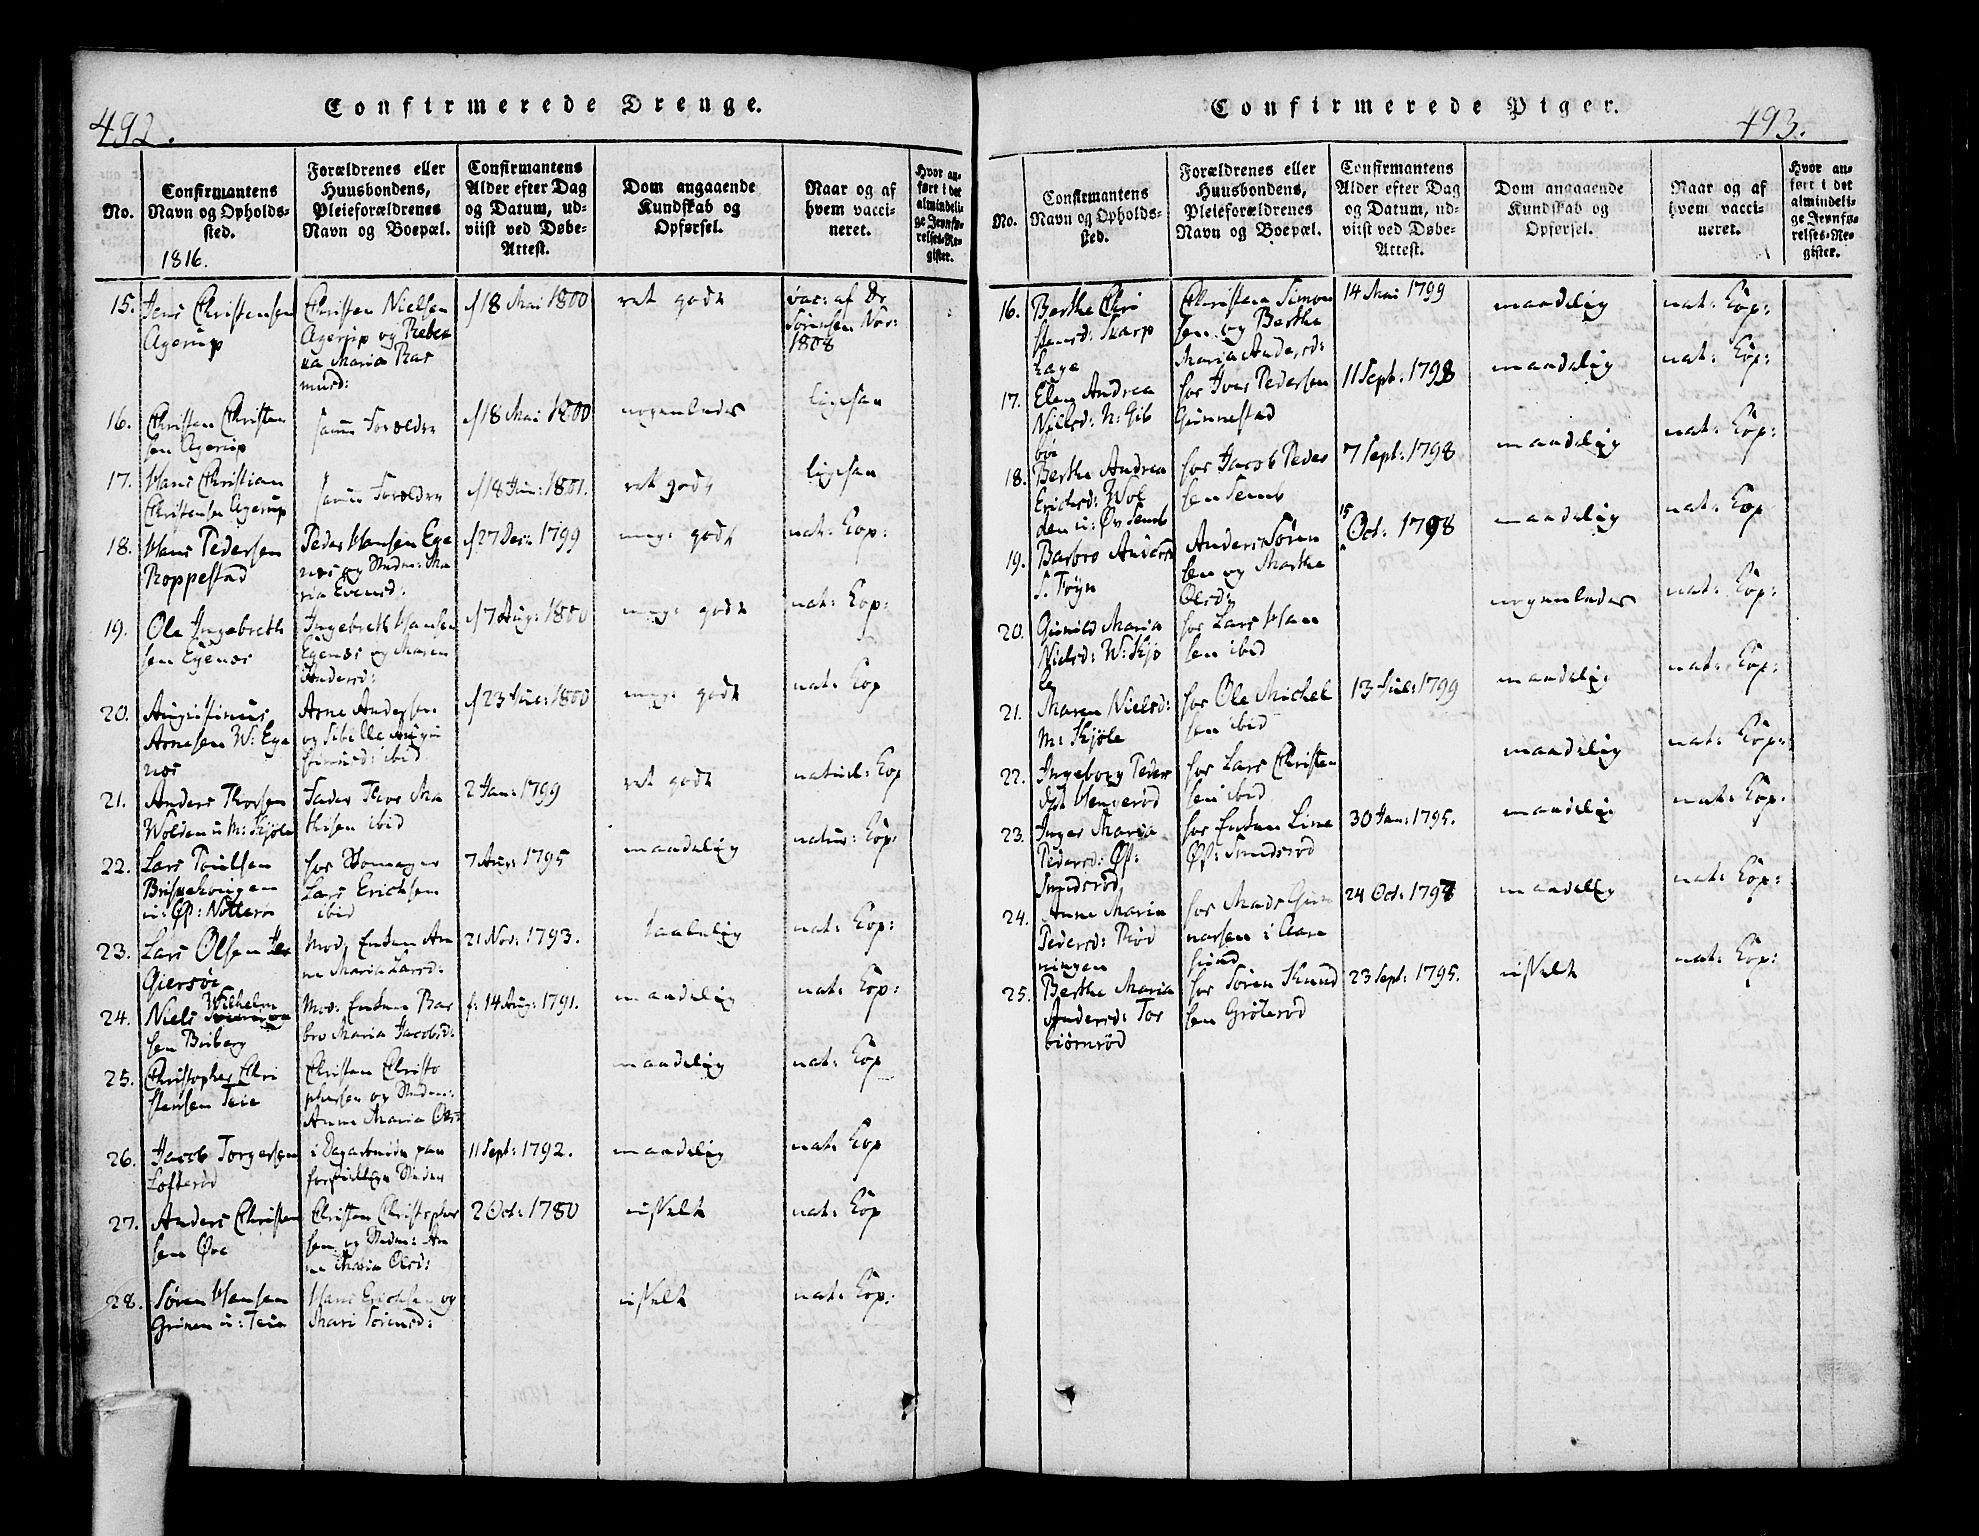 492.
Confirmerede Drenge.
No.
Confirmantens
Navn og Opholds-
sted.
1816.
Forældrenes eller
Huusbondens,
Pleieforældrenes
Navn og Boepæl.
Confirmantens
Alder efter Dag
og Datum, ud-
viist ved Døbe-
Attest.
Dom angaaende
Kundskab og
Opførsel.
Naar og af
hvem vacci-
neret.
Hvor an-
ført i det
almindeli-
ge Jevnfø-
relses-Re-
gister.
15. Jens Christensen
Agerup
Christen Nielsen
Agerup og Rebek
ka Maria Ras
musd:
18 Mai 1800
ret godt
vac: af Dr
Sørensen Nov:
1808
16. Christen Christen
sen Agerup
samme Forældre
18 Mai 1800
nogenledes
ligesaa
17. Hans Christian
Christensen Agerup
samme Forældre
18 Jun: 1801.
ret godt
ligesaa
18. Hans Pedersen
Roppestad
Peder Hansen Ege
næs og Ma
ria Evensd:
27 Dec: 1799
meg: godt
nat: Kop:
19. Ole Ingebreth
sen Egenæs
Ingebreth Hansen
Egenæs og Maren
Andersd:
17 Aug: 1800
meg: godt
nat: Kop:
20. Augustinus
Arnesen W: Ege
næs
Arne Andersen
og Sibille Augu
stinusd: ibid
23 Jul: 1800
meg: godt
nat: Kop
21. Anders Thorsen
Wolden u: M: Skjøle
Fader Thor Ma
thisen ibid
2 Jan: 1799
ret godt
naturl: Kop
22. Lars Poulsen
u: Øs: Nøtterø
hos
Lars Erichsen
ibid
7 Aug: 1795
maadelig
natur: Kop:
23. Lars Olsen
Giersøe
Mod, Enken An
ne Maria Larsd:
21 Nov: 1793.
taalelig
nat: Kop:
24. Niels Wilhelm
sen Buberg
Mod: Enken Bar
bro Maria Jacobsd:
f: 14 Aug: 1791.
maadelig
nat: Kop:
25. Christopher Chri
stensen Teie
Christen Christo
phersen og
Anne Maria Olsd
maadelig
nat: Kop
26. Jacob Torgersen
Lofterød
11 Sept: 1792.
maadelig
nat: Kop
27. Anders Christen
sen Øre
Christen Christopher
sen og An
ne Maria Olsd:
2 Oct: 1780
usselt
nat: Kop
28. Søren Hansen
Grinen u: Teie
Hans Erichsen og
Mari Sørensd:
usselt
nat: Kop:
Confirmerede Piger.
493.
No.
Confirmantens
Navn og Opholds-
sted.
Forældrenes eller
Huusbondens,
Pleieforældrenes
Navn og Boepæl.
Confirmantens
Alder efter Dag
og Datum, ud-
viist ved Døbe-
Attest.
Dom angaaende
Kundskab og
Opførsel.
Naar og af
hvem vacci-
neret.
Hvor an-
ført i det
almindeli-
ge Jevnfø-
relses-Re-
gister.
16. Berthe Chri
stensd: Skarp
hage
Christen Simon
sen og Berthe
Maria Andersd:
14 Mai 1799
maadelig
nat: Kop:
17. Elen Andrea
Nielsd: N: Gib
øe
hos Iver Pedersen
Gunnestad
11 Sept: 1798
maadelig
nat: Kop:
18. Berthe Andrea
Erichsd: Wol
den u: Øv Semb
hos Jacob Peder
sen Semb
7 Sept: 1798
maadelig
nat: Kop:
19. Barbro Anders
d. Føyn
Anders Søren
sen og Marthe
Olsd:
15 Oct: 1798
maadelig
nat: Kop
20. Gunild Maria
Nielsd: W: Skjø
le
hos Lars Han
sen ibid
nogenledes
nat: Kop:
21. Maren Nielsd:
M: Skjøle
hos Ole Michel
sen ibid
13 Jul: 1799
maadelig
nat: Kop:
22. Ingeborg Peder
sd:
hos Lars Christen
sen ibid
maadelig
nat: Kop:
23. Inger Maria
Pedersd: Øs:
Smidsrød
hos Enken Line
Øs: Smidsrød
30 Jan: 1795.
maadelig
nat: Kop:
24. Anne Maria
Pedersd: Rød
ningen
hos Mads Gun
narsen i Aare
sund
24 Oct: 1797
maadelig
nat: Kop:
25. Berthe Maria
Andersd: Tor
biørnrød
hos Søren Knud
sen Grøterød
23 Sept: 1795.
usselt
nat: Kop: